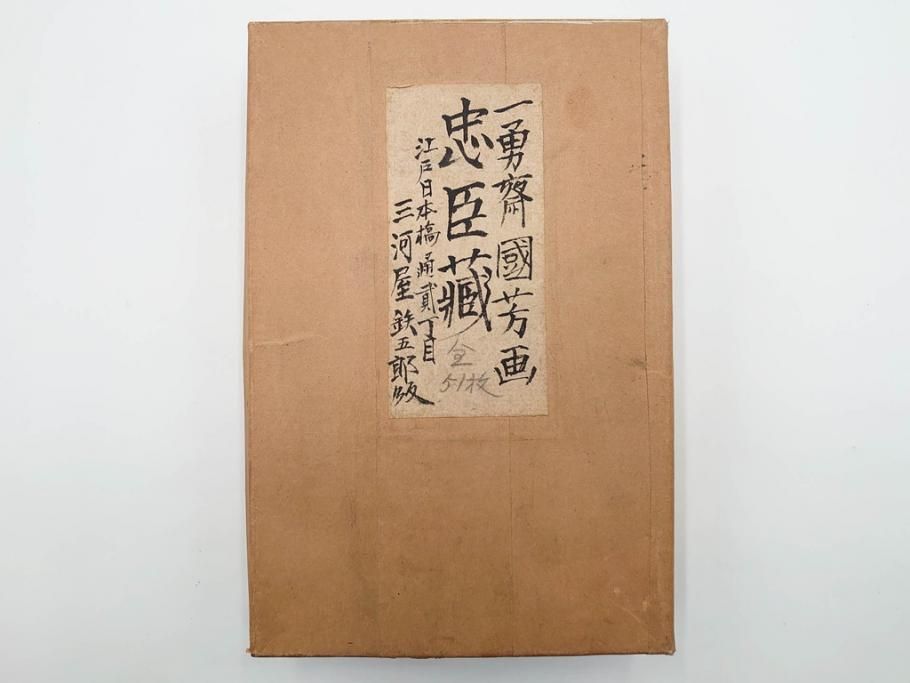 一勇齋國芳画
忠臣藏
全
51枚
江戸日本橋通貳丁目
三河屋鉄五郎版